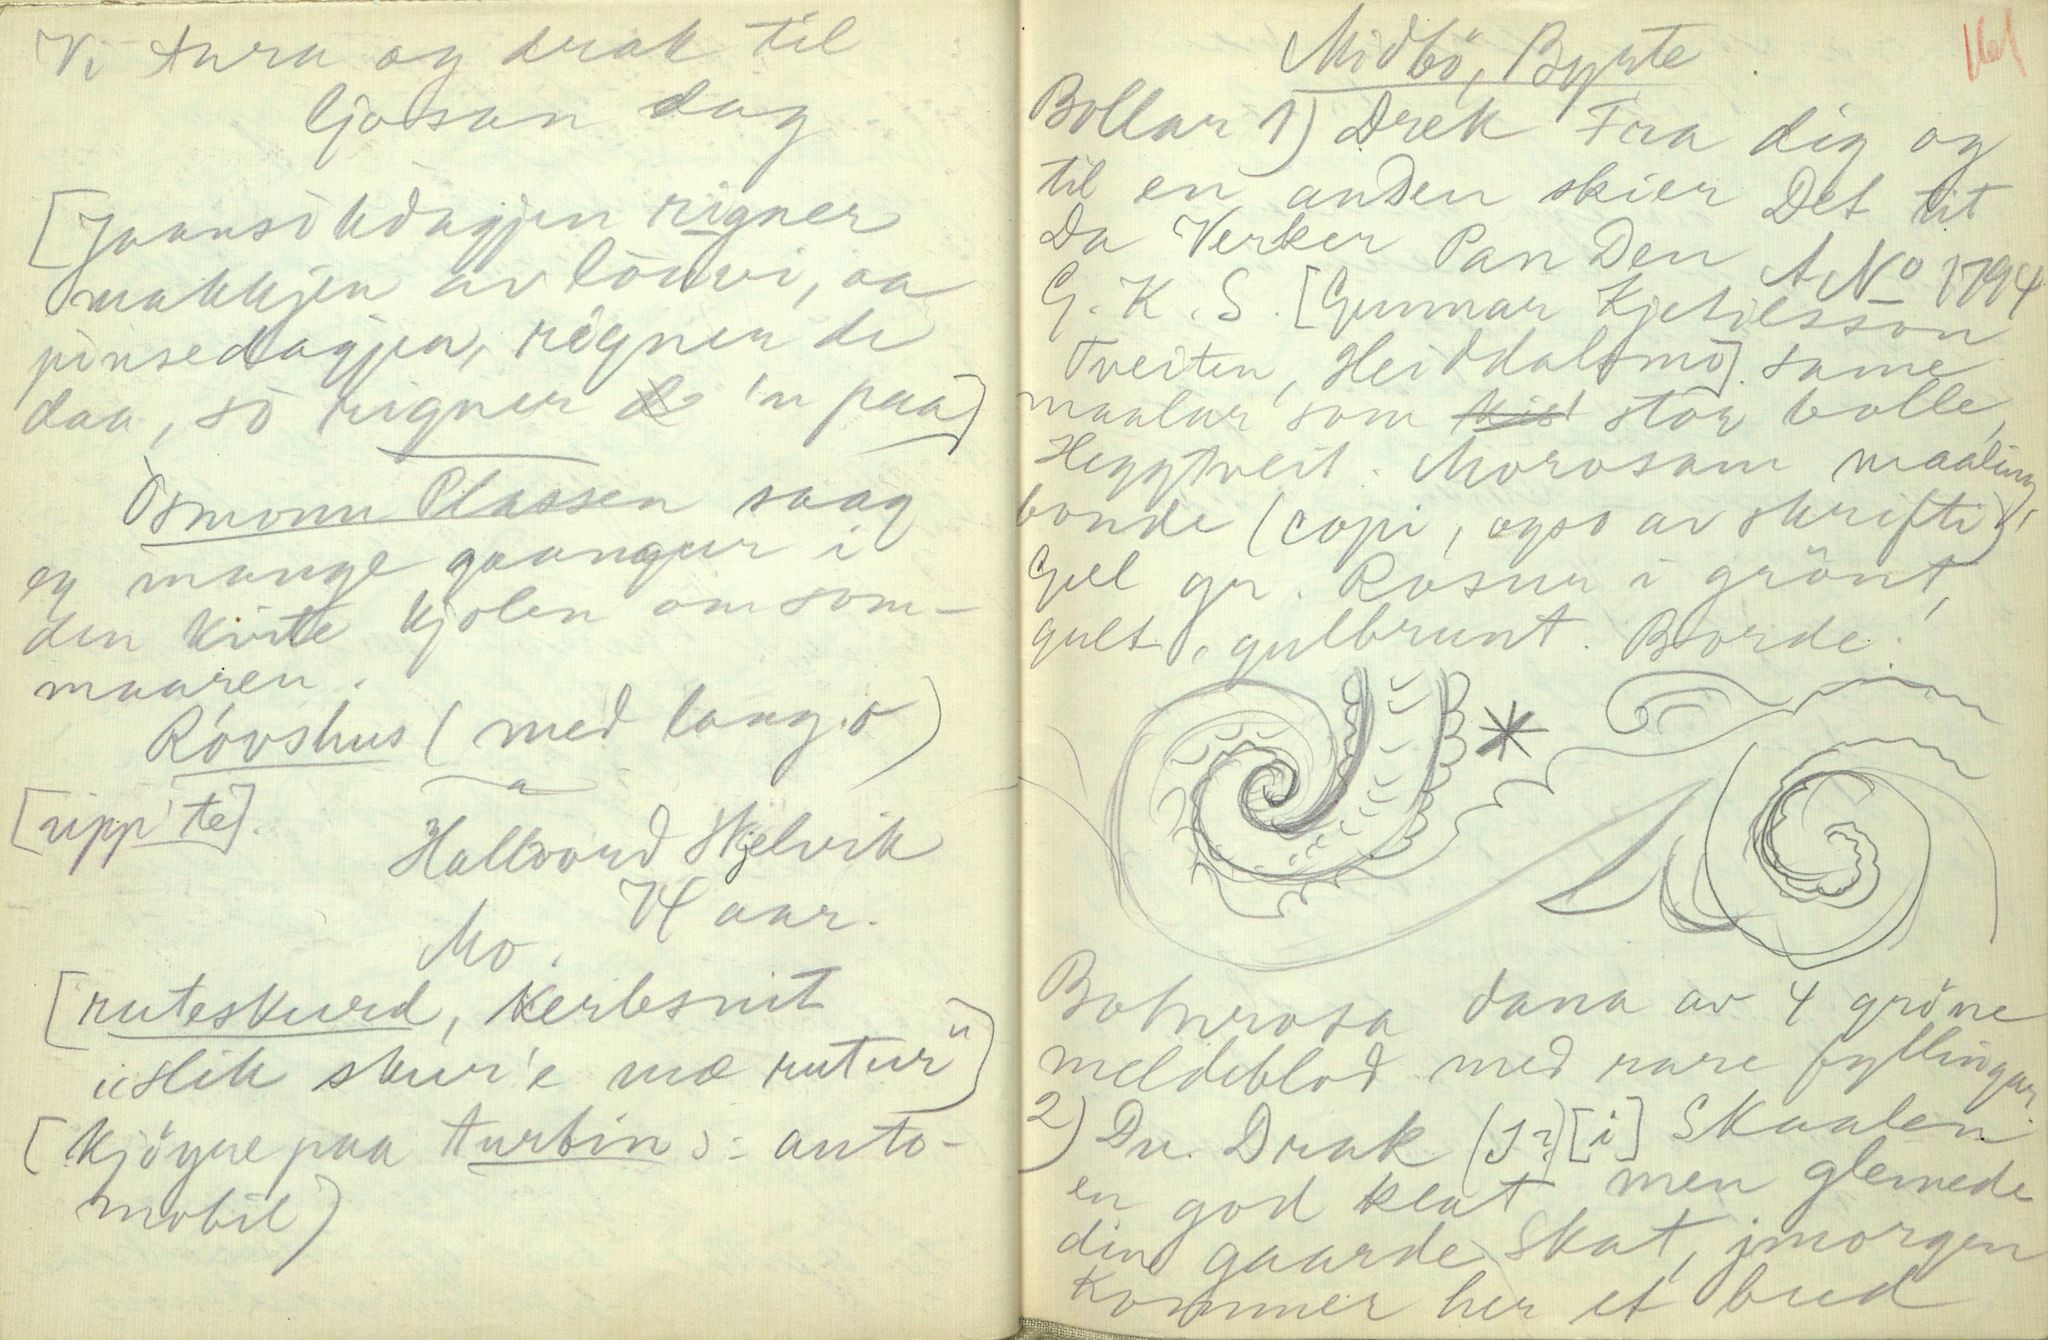 Vi tura og drak til
ljosan dag
[Jaansòkdagjen rigner
makkjen av lauvi, aa
pinsedagjen, rigner de
daa, so rigner 'n paa]
Òsmonn Plassen saag
eg mange gaangur i
den kvite kjolen om som-
maaren.
Róvshus (med lang o)
[uppi te].
Hallvord Skjelvik
74 aar.
Mo.
[ruteskurd, Kerbsnit
"slik skur'e mæ rutur"]
[Kjöyre paa turbin ɔ: auto-
mobil]
Midbö, Byrte
161
Bollar 1) Drek Fra dig og
til en anden skier Det tit
Da Verker Pan Den
A No 1794
G. K. S. [Gunnar Kjetilsson
Tveiten, Heiddalsmo]. same
maalar som stor bolle,
Heggtveit. Morosam maaling,
bonde (copi, ogso av skrifti),
Gul gr. Rosur i grönt,
gult, gulbrunt. Borde:
Botnrosa dana av 4 gröne
meldeblod med rare fyllingar.
2) Du. Drak (I?) [i] Skaalen
en god klat men glemede
din gaarde Skat, jmorgen
Kommer her et bud